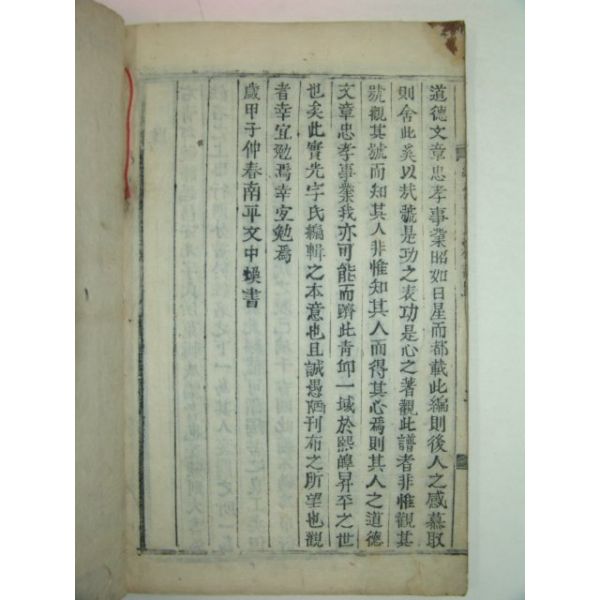 道德文章忠孝事業昭如日星而都載此編則後人之感慕取
則舍此奚以哉號是功之表功是心之著觀此譜者非惟觀其
號觀其號而知其人非惟知其人而得其心焉則其人之道德
文章忠孝事業我亦可能而躋此青邱一域於熙皥昇平之世
也矣此實光字氏編輯之本意也且誠愚陋刊布之所望也觀
者幸宜勉焉幸宜勉焉
歲甲子仲春南平文中燥書